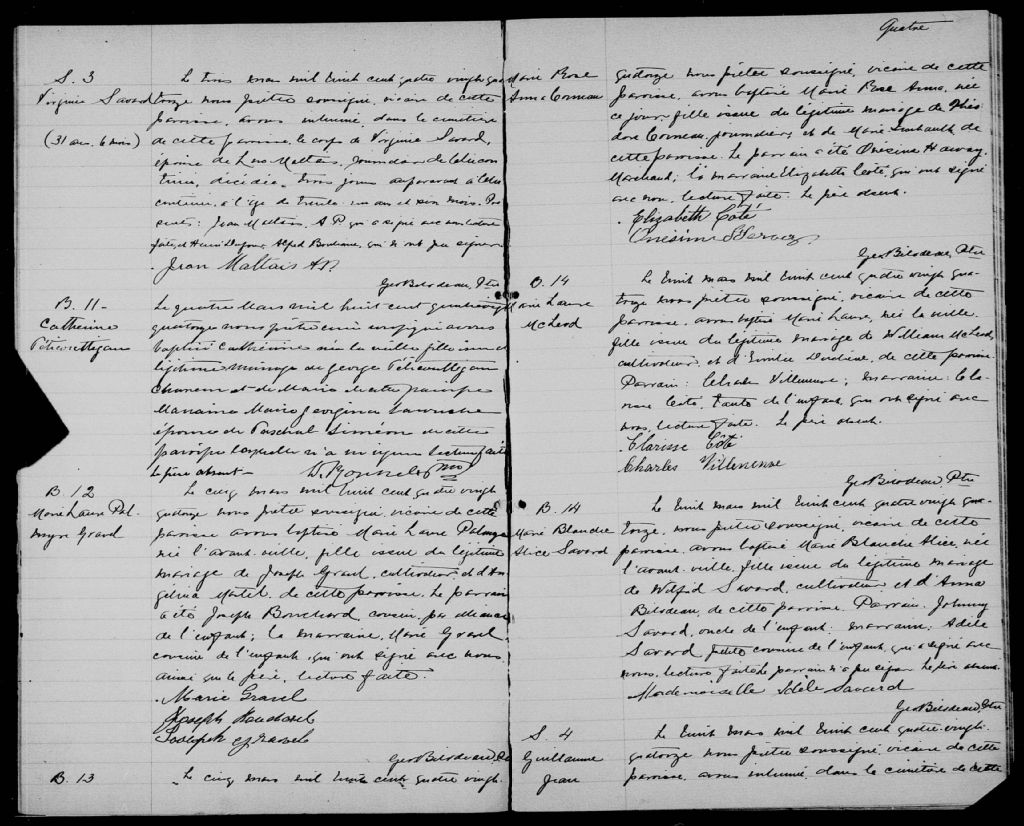 S. 3
Virginie Savard
(31 ans. 6 mois)
Le trois mars mil huit cent quatre vingt qua
torze nous prêtre soussigné, vicaire de cette
paroisse, avons inhumé, dans le cimetière
de cette paroisse, le corps de Virginie Savard,
épouse de Maltais, journalier, de Chicou
timi, décédée, trois jours auparavant à Chi
coutimi, à l'âge de trente un ans et six mois. Pré
sents: Jean Maltais, A.P. qui a signé avec nous lecture
faite, et Henri Dufour, Alfred Bordeau, qui n'ont pu signer
Jean Maltais A.P.
Geo Bilodeau, Ptre
B. 11
Catherine
Le quatre Mars mil huit cent quatre vingt
quatorze nous prêtre curé soussigné avons
baptisé Catherine née la veille fille issue du
légitime mariage de George
et de Marie de cette paroisse
Marraine Marie Georgina
épouse de Paschal Siméon de cette
paroisse laquelle n'a su signer lecture faite
Le père absent
B. 12
Marie Laure Pal-
myre Gravel
Le cinq mars mil huit cent quatre vingt
quatorze nous prêtre soussigné, vicaire de cette
paroisse avons baptisé Marie Laure Palmyre
née l'avant-veille, fille issue du légitime
mariage de Joseph Gravel, cultivateur, et d'An
gelina Martel de cette paroisse. Le parrain
a été Joseph Bouchard, cousin par alliance
de l'enfant; la marraine, Marie Gravel
cousine de l'enfant, qui ont signé avec nous
ainsi que le père, lecture faite.
Marie Gravel
Joseph Bouchard
Joseph Gravel
Geo Bilodeau, Ptre
B. 13
Le cinq mars mil huit cent quatre vingt
Quatre
Marie Rose
Anna Corneau
quatorze nous prêtre soussigné, vicaire de cette
paroisse, avons baptisé Marie Rose Anna, née
ce jour, fille issue du légitime mariage de Théo
dore Corneau, journalier, et de Marie Imbault de
cette paroisse. Le parrain a été Onésime Harvey,
Marchand; la marraine Elizabeth Coté, qui ont signé
avec nous, lecture faite. Le père absent.
Elizabeth Coté
Onésime Harvey
Geo Bilodeau, Ptre
B. 14
Marie Laure
McLeod
Le huit mars mil huit cent quatre vingt qua-
torze nous prêtre soussigné, vicaire de cette
paroisse, avons baptisé Marie Laure, née la veille
fille issue du légitime mariage de William McLeod,
cultivateur, et d'Emilie de cette paroisse.
Parrain: Charles Villeneuve; marraine: Cla-
risse Coté, tante de l'enfant, qui ont signé avec
nous, lecture faite. Le père absent.
Clarisse Côté
Charles Villeneuve
Geo Bilodeau, Ptre
B. 14
Marie Blanche
Alice Savard
Le huit mars mil huit cent quatre vingt qua-
torze, nous prêtre soussigné, vicaire de cette
paroisse, avons baptisé Marie Blanche Alice, née
l'avant veille, fille issue du légitime mariage
de Wilfid Savard, cultivateur et d'Anna
Bilodeau, de cette paroisse. Parrain, Johnny
Savard, oncle de l'enfant; marraine: Adèle
Savard, petite cousine de l'enfant, qui a signé avec
nous, lecture faite, le parrain n'a pu signer. Le père absent.
Mademoiselle Adèle Savard
Geo Bilodeau, Ptre
S. 4
Guillaume
Jean
Le huit mars mil huit cent quatre vingt
quatorze nous prêtre soussigné, vicaire de cette
paroisse, avons inhumé, dans le cimetière de cette